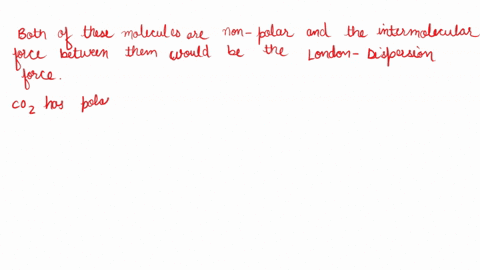 Both of these molecules are non-polar and the intermolecular
force between them would be the London-Dispersion
force.
CO2 has pola